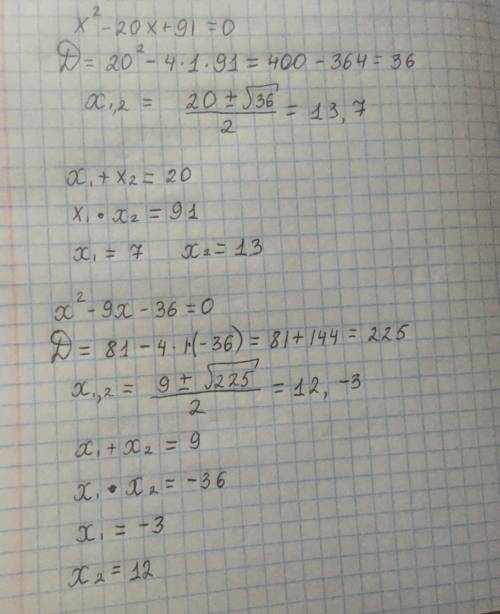 x² - 20x + 91 = 0
D = 20² - 4 · 1 · 91 = 400 - 364 = 36
x₁,₂ = (20 ± √36)/2 = 13, 7
x₁ + x₂ = 20
x₁ · x₂ = 91
x₁ = 7 x₂ = 13
x² - 9x - 36 = 0
D = 81 - 4 · 1(-36) = 81 + 144 = 225
x₁,₂ = (9 ± √225)/2 = 12, -3
x₁ + x₂ = 9
x₁ · x₂ = -36
x₁ = -3
x₂ = 12